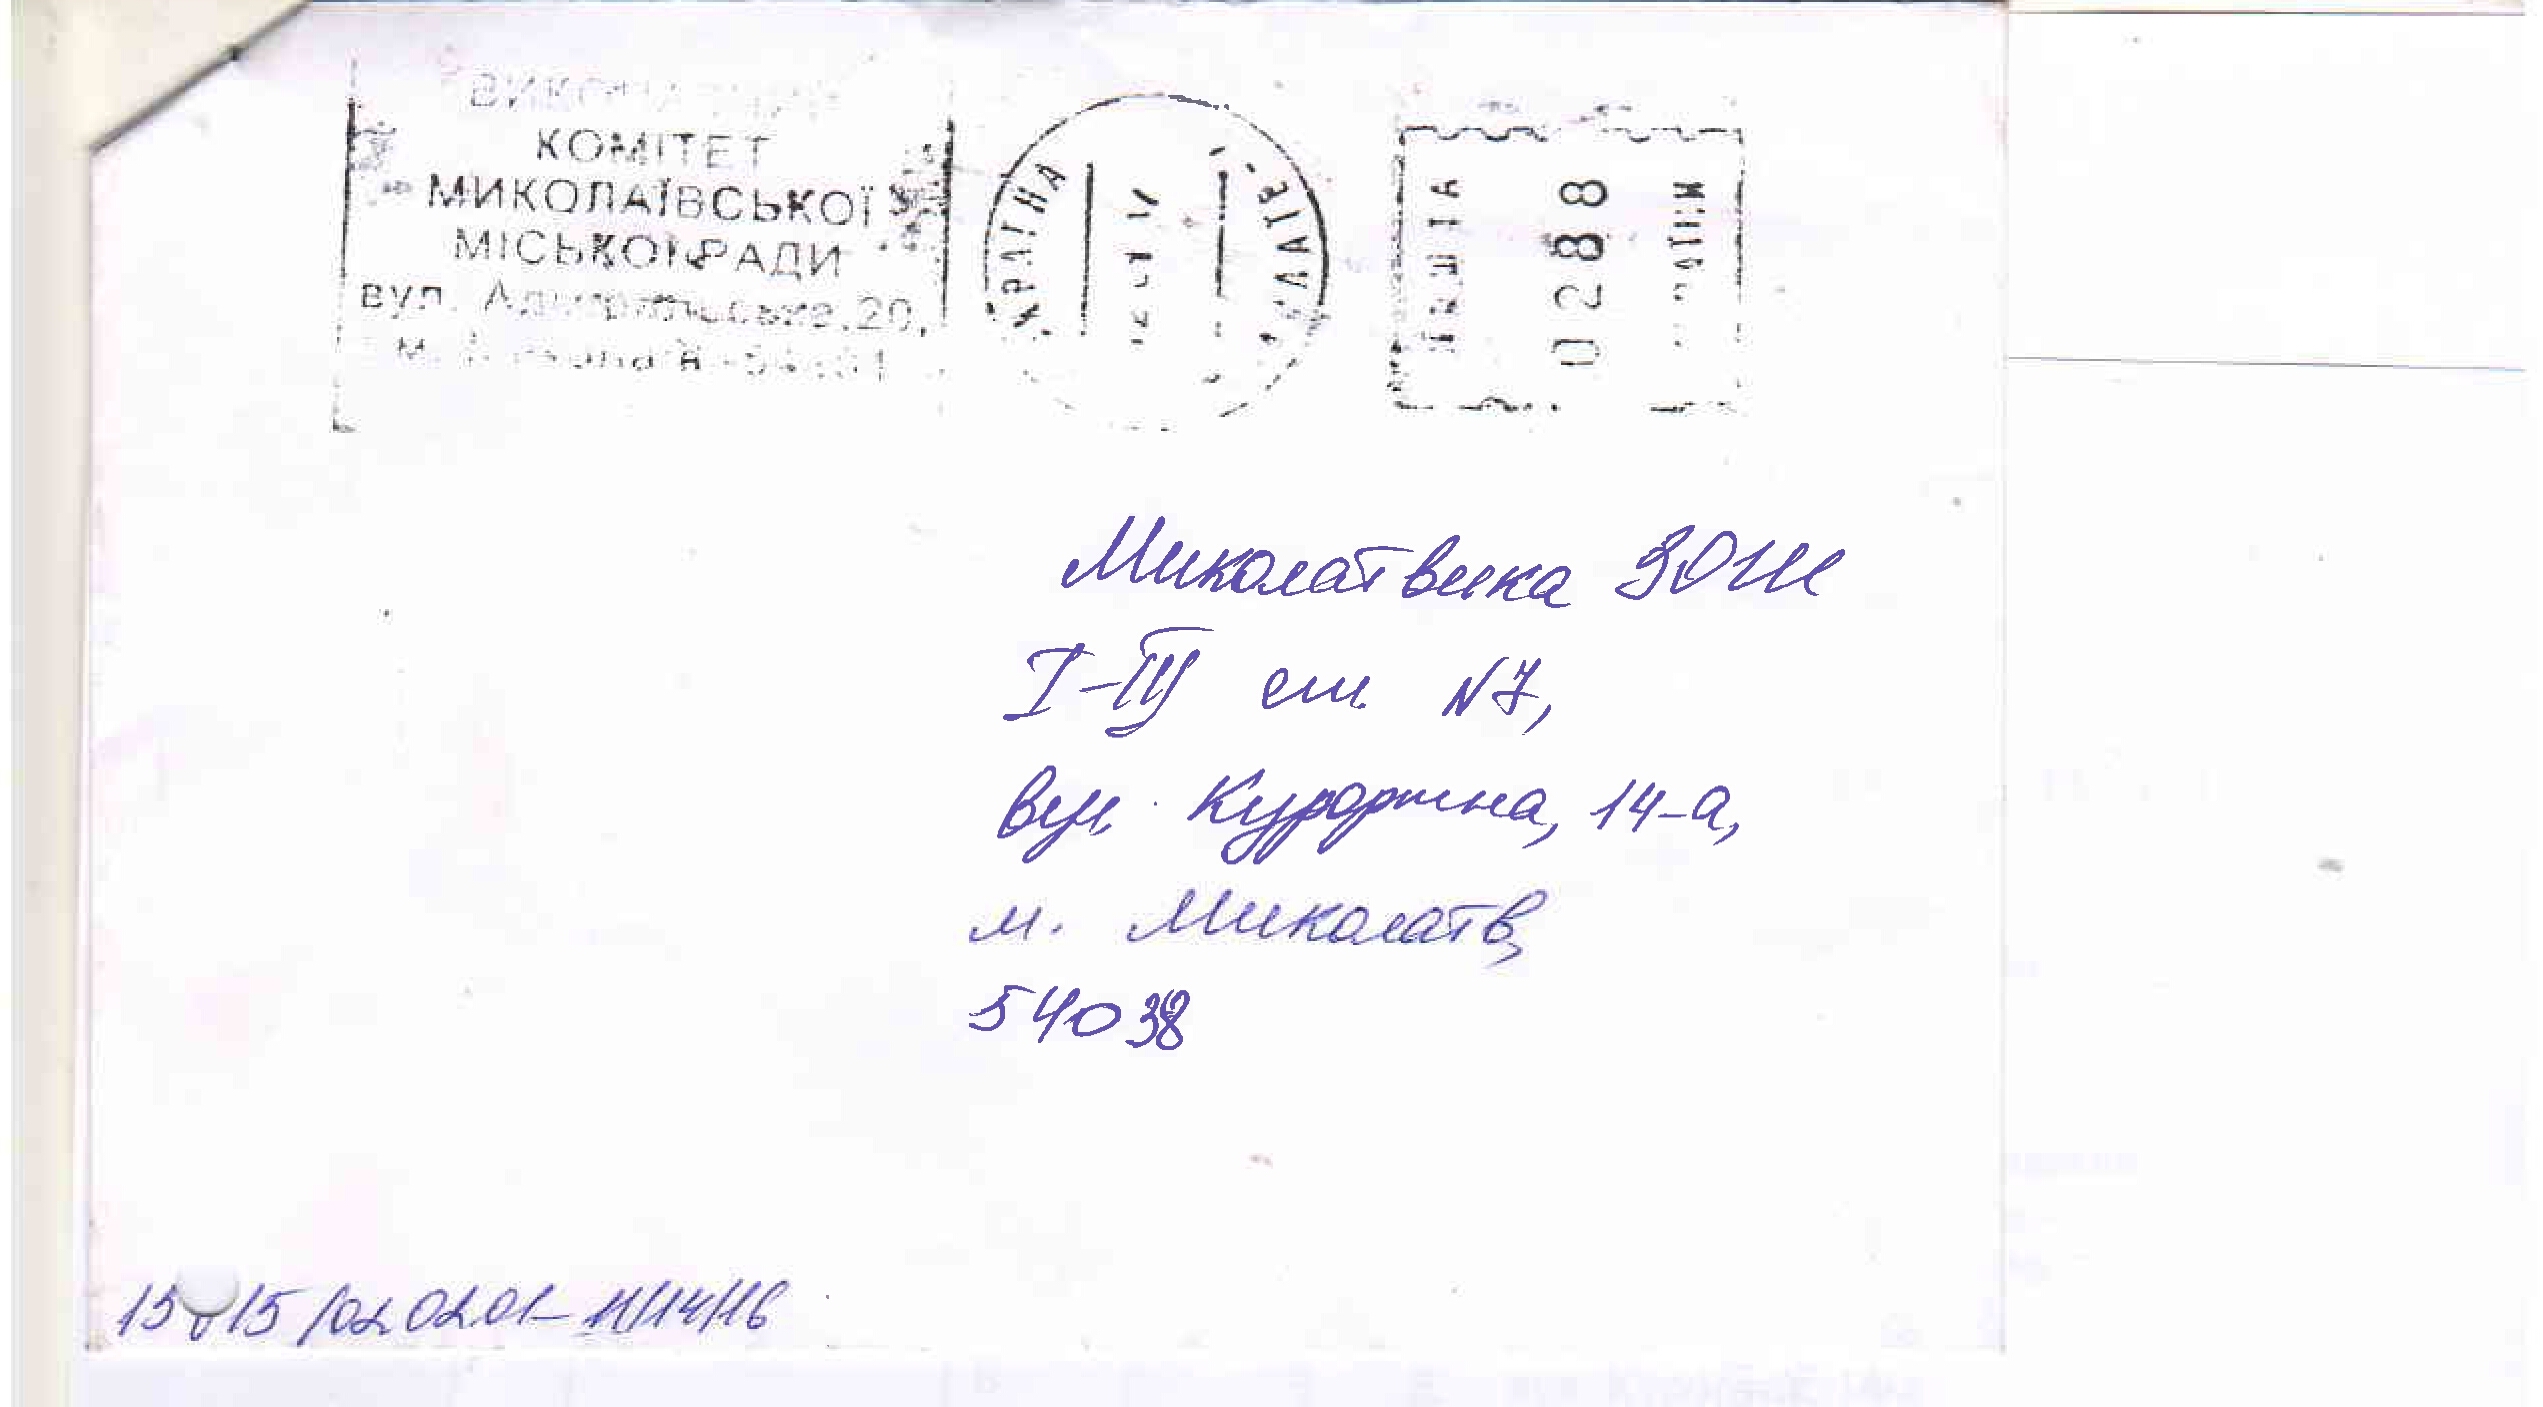 ВИКОНАВЧИЙ
КОМІТЕТ
МИКОЛАЇВСЬКОЇ
МІСЬКОЇ РАДИ
вул. Адміральська,20,
м.
УКРАЇНА
ПОШТА
0288
Миколаївська ЗОШ
І-ІІІ ст. N7,
вул. Курортна, 14-а,
м. Миколаїв,
54038
/02.02.01-11/14/16